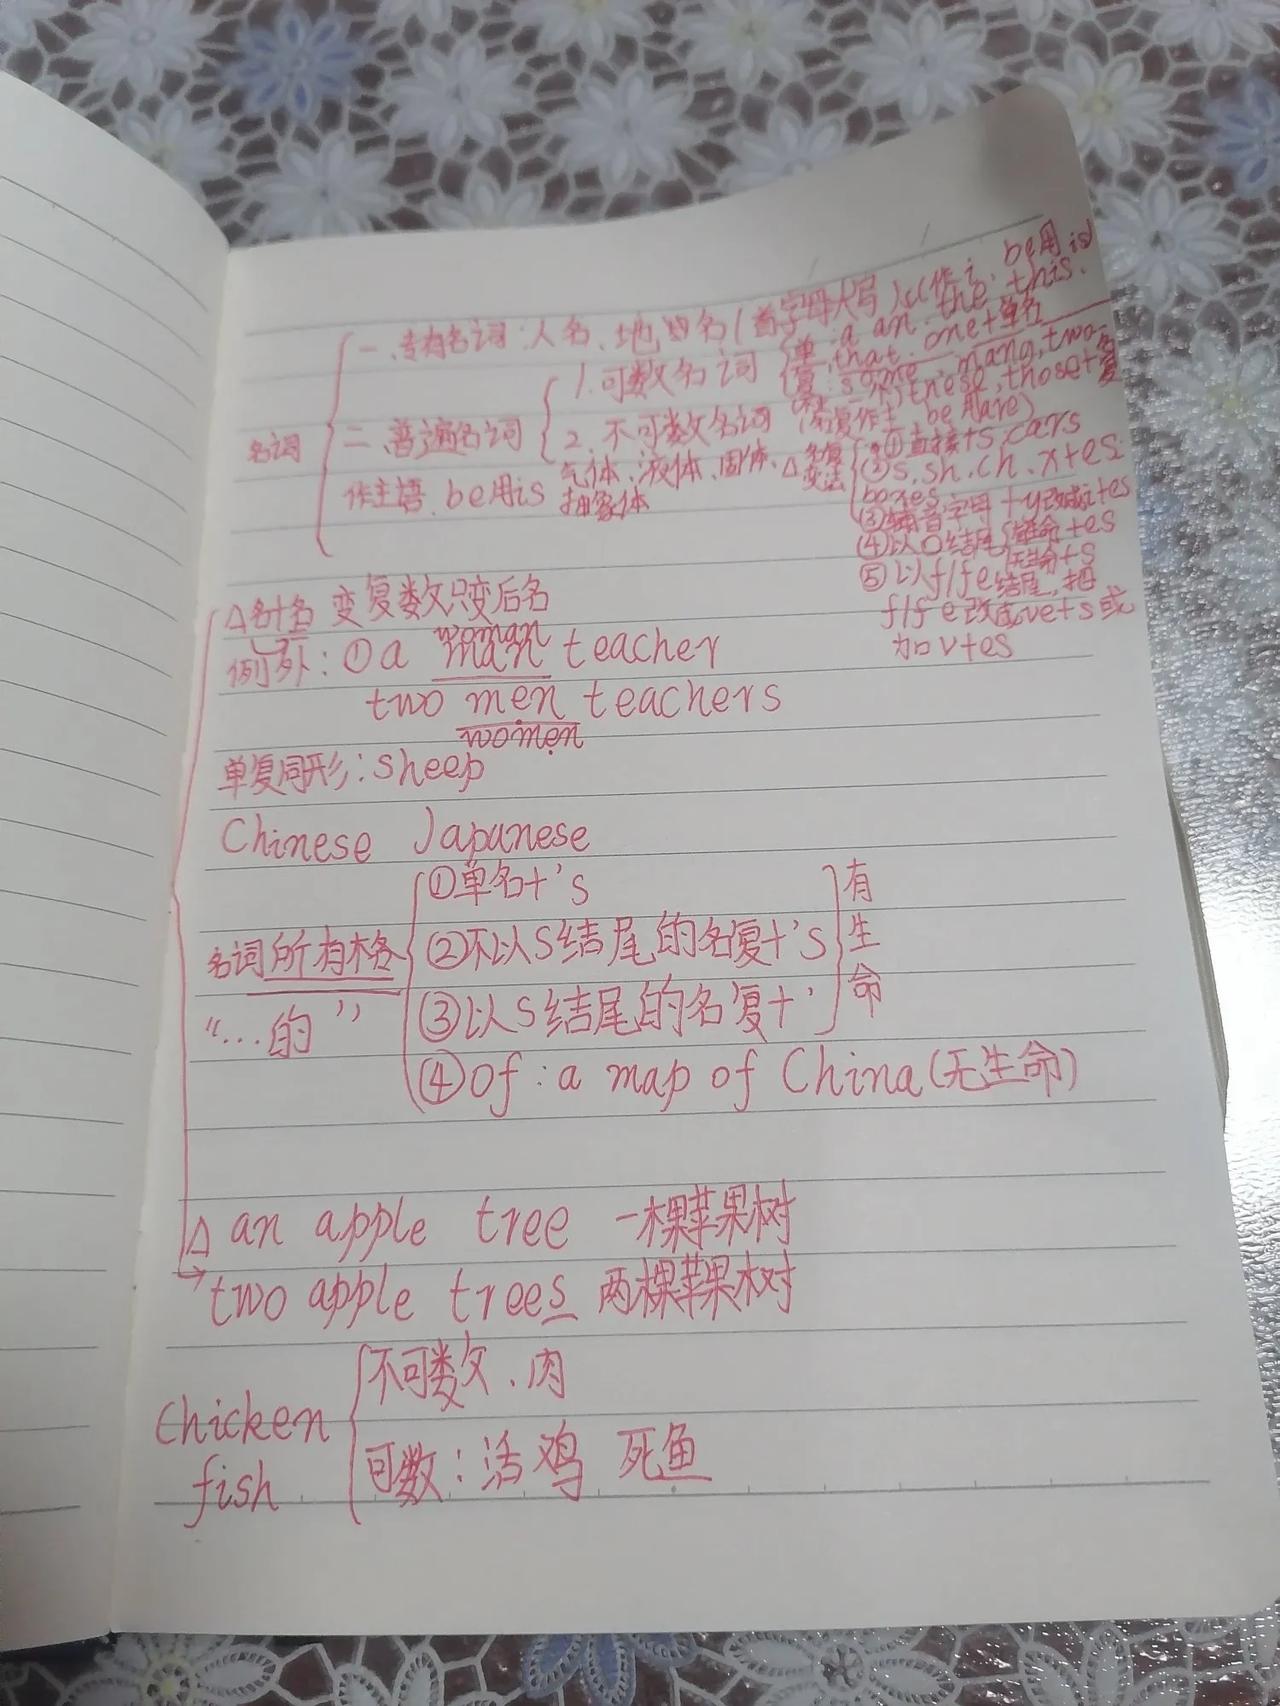 名词
一、专有名词:人名、地名(首字母大写)(作主,be用is)
二、普通名词
作主语,be用is
1.可数名词
单:a an. the. this.
that. one+单名
复:some, many, two
these, those+名复
(名复作主,be用are)
2.不可数名词
气体、液体、固体、
抽象体
△名复变法
①直接+s cars
②s.sh.ch.x+es
boxes
③辅音字母+y改成i+es
④以O结尾 有生命+es
无生命+s
⑤以f/fe结尾,把
f/fe改成ve+s或
加v+es
△名+名 变复数只变后名
例外:①a man teacher
woman
two men teachers
women
单复同形:sheep
Chinese Japanese
名词所有格
“...的”
①单名+'s
②不以S结尾的名复+'s
③以S结尾的名复+'
有生命
④of:a map of China(无生命)
△ an apple tree 一棵苹果树
two apple trees 两棵苹果树
chicken
fish
不可数、肉
可数:活鸡 死鱼